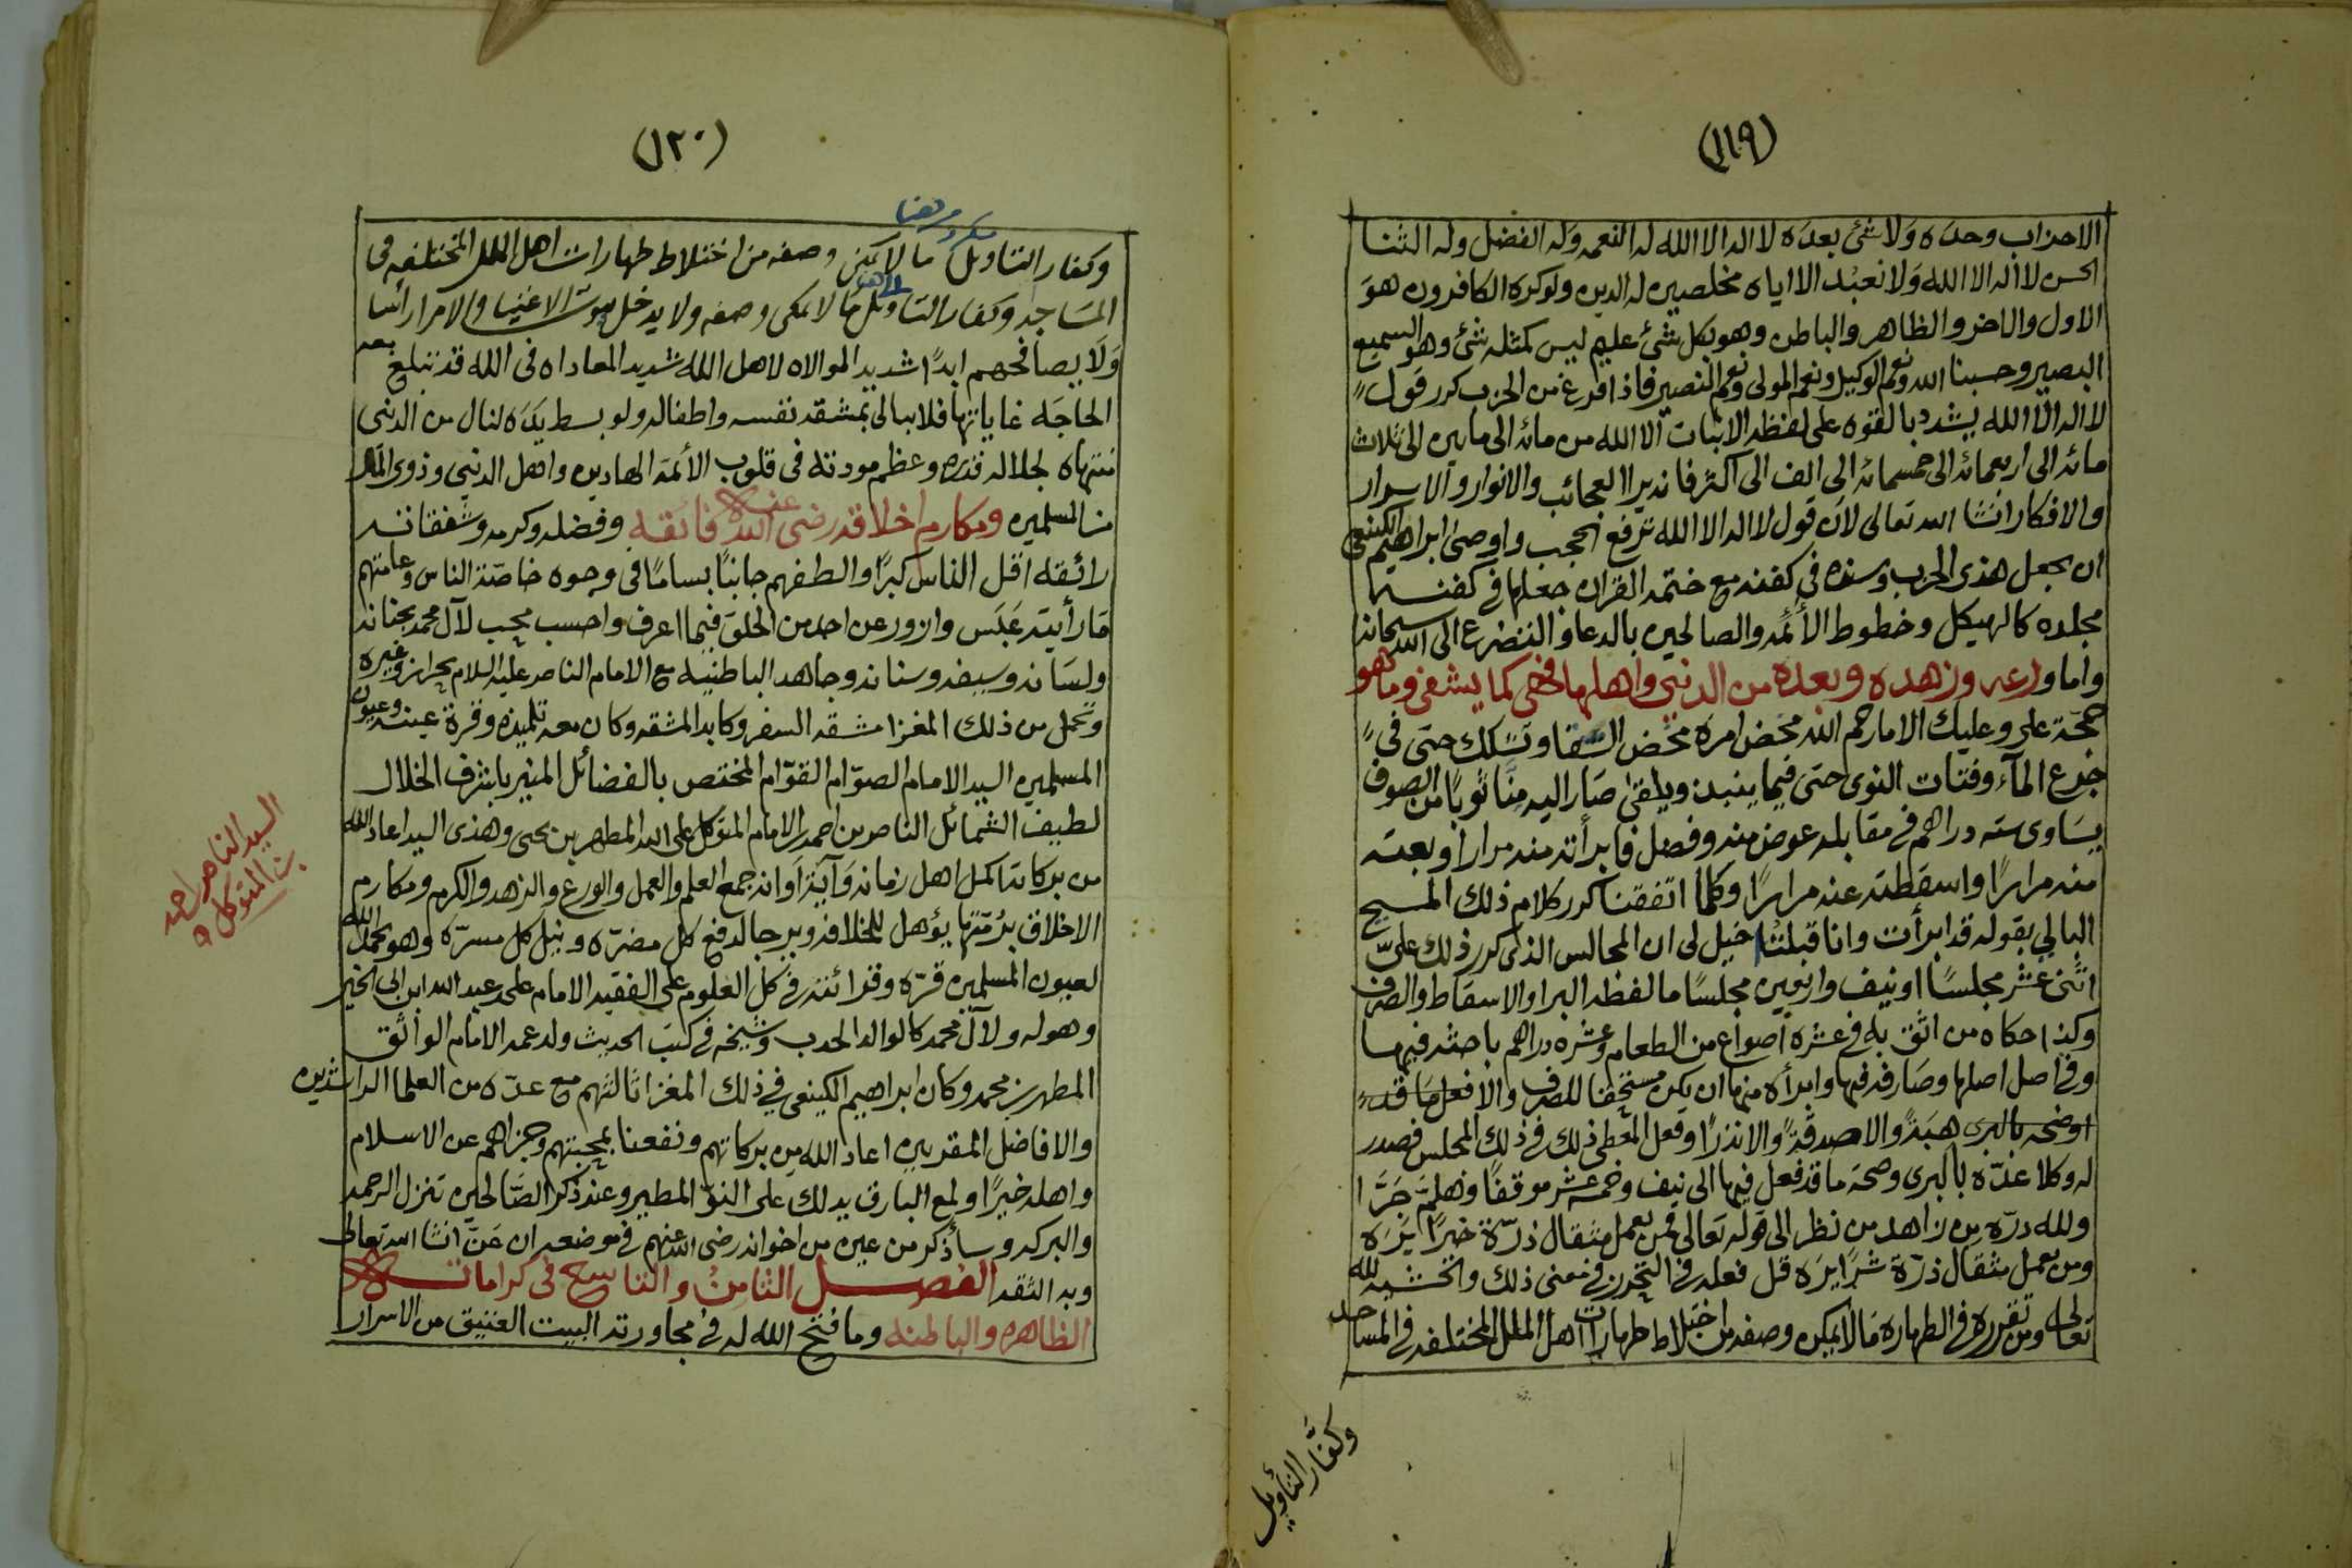 (١١٩)
الاحزاب وحده ولا شئ بعده لا اله الا الله له النعمه وله الفضل وله الثنا
الحسن لا اله الا الله ولا نعبد الا اياه مخلصين له الدين ولو كره الكافرون هو
الاول والاخر والظاهر والباطن وهو بكل شئ عليم ليس كمثله شئ وهو السميع
البصير وحسبنا الله ونعم الوكيل ونعم المولى ونعم النصير فاذا فرغ من الحزب كرر قول
لا اله الا الله يشدد بالقوه على لفظه الاثبات الا الله من مائه الى مايتين الى ثلاث
مائه الى اربعمائه الى خمسمائه الى الف الى اكثر فانه يرا العجائب والانوار والاسرار
والافكار انشا الله تعالى لان قول لا اله الا الله ترفع الحجب واوصى ابراهيم الكينعي
ان يجعل هذى الحزب وسنده في كفنه مع ختمه القران جعلها في كفنه
مجلده كالهيكل وخطوط الأئمه والصالحين بالدعا والتضرع الى الله سبحانه
واما ورعه وزهده وبعده من الدنيى واهلها فخى كما يشفى وما هو
حجة علي وعليك الا مارحم الله محض امره محض السقا وتسكك حتى في
جرع المآء وفتات النوى حتى فيما ينبذ ويلقى صار اليه منا ثوبا من الصوف
يساوى سته دراهم في مقابله عوض منه وفضل فابرأته منه مرارا وبعته
منه مرارا واسقطته عنه مرارا وكلما اتفقنا كرر كلام ذلك المسبح
البالي بقوله قد ابرأت وانا قبلت خيل لى ان المجالس الذى كرر ذلك علىّ
اثنى عشر مجلسا او نيف واربعين مجلسا ما لفظه البرا والاسقاط والصرف
وكذا حكاه من اثق به في عشره اصواع من الطعام وعشره دراهم باحثه فيها
وفي اصل اصلها وصارفه فيها وابرأه منها ان يكن مستحقا للصرف والا فعل ما قد
اوضحه بالبرى هبة والا صدقة والا نذرا وفعل المعطى ذلك في ذلك المجلس فصدر
له وكلا عده بالبرى وصحه ما قد فعل فيها الى نيف وخمسه عشر موقفا وهلم جرا
ولله دره من زاهد من نظر الى قوله تعالى فمن يعمل مثقال ذرة خيرا يره
ومن يعمل مثقال ذرة شرا يره قل فعله في التحرز في معنى ذلك والخشيه لله
تعالى ومن تقرره في الطهاره مالا يمكن وصفه من اختلاط طهارات اهل الملل المختلفه في المساجد
وكفار التأويل
(١٢٠)
مكرر من هنا
وكفار التاويل ما لا يمكن وصفه من اختلاط طهارات اهل الملل المختلفه في
الى هنا
المساجد وكفار التاويل ما لا يمكن وصفه ولا يدخل بيوت الاغنيا والامرا رأسا
ولا يصافحهم ابدا شديد الموالاه لاهل الله شديد المعاداه في الله قد تبلغ معه
الحاجه غاياتها فلا يبالى بمشقه نفسه واطفاله ولو بسط يده لنال من الدنيى
منتهاه لجلاله قدره وعظم مودته في قلوب الأئمه الهادين واهل الدنيى وذوى المال
من المسلمين ومكارم اخلاقه رضى الله عنه فائقه وفضله وكرمه وشفقاته
رائقه اقل الناس كبرا والطفهم جانبا بساما في وجوه خاصة الناس وعامتهم
ما رأيته عبس وازور عن احد من الخلق فيما اعرف واحسب محب لآل محمد بجنانه
ولسانه وسيفه وسنانه وجاهد الباطنيه مع الامام الناصر عليه السلام بحراز وغيره
وتحمل من ذلك المغزا مشقه السفر وكابد المشقه وكان معه تلميذه وقرة عينه وعيون
المسلمين السيد الامام الصوّام القوّام المختص بالفضائل المنير باشرف الخلال
لطيف الشمائل الناصر بن احمد بن الامام المتوكل على الله المطهر بن يحيى وهذى السيد اعاد الله
من بركاته اكمل اهل زمانه وآية اوانه جمع العلم والعمل والورع والزهد والكرم ومكارم
الاخلاق برمتها يؤهل للخلافه ويرجا لدفع كل مضره ونيل كل مسره وهو بحمد الله
لعيون المسلمين قره وقرائته في كل العلوم على الفقيه الامام علي بن عبد الله ابن ابى الخير
وهو له ولآل محمد كالوالد الحدب وشيخه في كتب الحديث ولد عمه الامام الواثق
المطهر بن محمد وكان ابراهيم الكينعى في ذلك المغزا ثالثهم مع عده من العلما الراشدين
والافاضل المقربين اعاد الله من بركاتهم ونفعنا بمحبتهم وجزاهم عن الاسلام
واهله خيرا ولمع البارق يدلك على النوّ المطير وعند ذكر الصالحين تنزل الرحمه
والبركه وسأذكر من عين من اخوانه رضى الله عنهم في موضعه ان عنّ انشا الله تعالى
وبه الثقه الفصل الثامن والتاسع في كراماته
الظاهره والباطنه وما فتح الله له في مجاورته البيت العتيق من الاسرار
السيد الناصر احمد
بن المتوكل